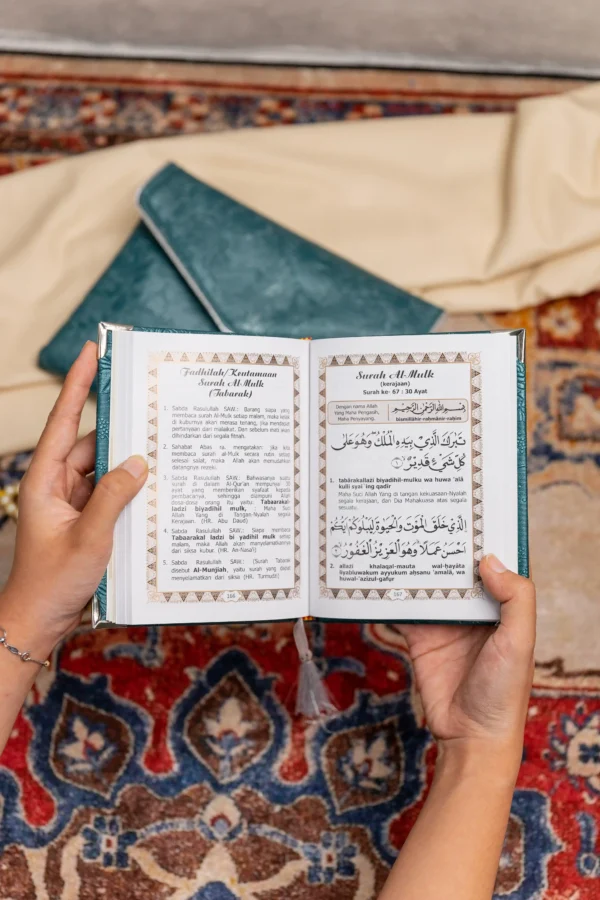 Fadhilah/Keutamaan
Surah Al-Mulk
(Tabarak)
1. Sabda Rasulullah SAW.: Barang siapa yang
membaca surah Al-Mulk setiap malam, maka kelak
di kuburnya akan merasa tenang, jika mendapat
pertanyaan dari malaikat. Dan sebelum mati akan
dihindarkan dari segala fitnah.
2. Sahabat Abas ra. mengatakan: jika kita
membaca surah Al-Mulk secara rutin setiap
selesai salat, maka Allah akan memudahkan
datangnya rezeki.
3. Sabda Rasulullah SAW.: Bahwasanya suatu
surah di dalam Al-Qur'an mempunyai 30
ayat yang memberikan syafaat kepada
pembacanya, sehingga diampuni Allah
dosa-dosa orang itu yaitu: Tabaaraka-
ladzi biyadihil mulk, : Maha Suci
Allah Yang di Tangan-Nyalah segala
Kerajaan. (HR. Abu Daud)
4. Sabda Rasulullah SAW.: Siapa membaca
Tabaarakal ladzi bi yadihil mulk setiap
malam, maka Allah akan menyelamatkannya
dari siksa kubur. (HR. An-Nasa'i)
5. Sabda Rasulullah SAW.: (Surah Tabarak
disebut Al-Munjiah, yaitu surah yang dapat
menyelamatkan) dari siksa (HR. Turmudzi)
166
Surah Al-Mulk
(kerajaan)
Surah ke: 67 : 30 Ayat
Dengan nama Allah
Yang Maha Pengasih,
Maha Penyayang.
بِسْمِ اللهِ الرَّحْمٰنِ الرَّحِيْمِ
bismillāhir-raḥmānir-raḥīm
تَبٰرَكَ الَّذِيْ بِيَدِهِ الْمُلْكُ وَهُوَ عَلٰى
كُلِّ شَيْءٍ قَدِيْرٌ ۝١
1. tabārakallazi biyadihil-mulku wa huwa 'alā
kulli syai`ing qadīr
Maha Suci Allah Yang di tangan kekuasaan-Nyalah
segala kerajaan, dan Dia Mahakuasa atas segala
sesuatu.
اِلَّذِيْ خَلَقَ الْمَوْتَ وَالْحَيٰوةَ لِيَبْلُوَكُمْ اَيُّكُمْ
اَحْسَنُ عَمَلًا ۗوَهُوَ الْعَزِيْزُ الْغَفُوْرُ ۝٢
2. allazi khalaqal-mauta wal-ḥayāta
liyabluwakum ayyukum aḥsanu 'amalā, wa
huwal-'azīzul-gafụr
167